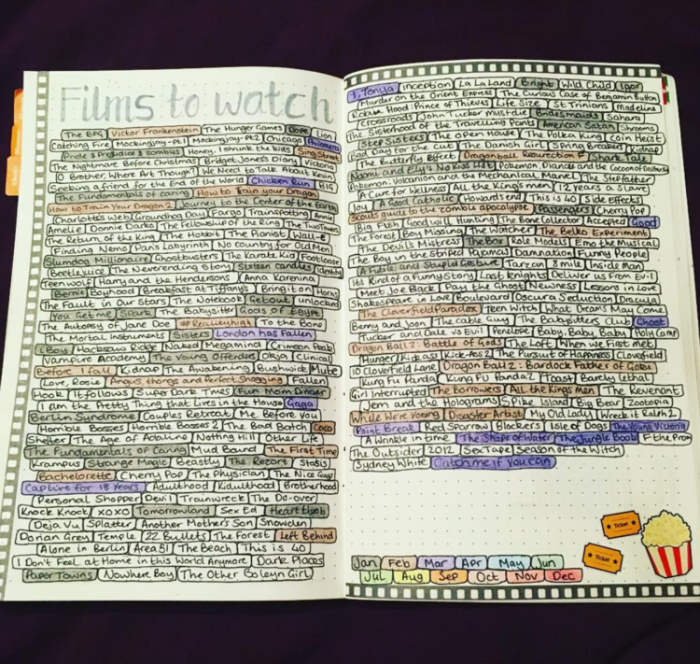 Films to watch
The BFG Victor Frankenstein The Hunger Games Dope Lion
Catching Fire Mockingjay-pt1 Mockingjay-pt2 Chicago Philomena
Pride & Prejudice & zombies Honey, I shrunk the kids Sing Street
The Nightmare Before Christmas Bridget Jones's Diary Victoria
O Brother, Where Art Thou? We Need To Talk About Kevin
Seeking a friend for the End of the World Chicken Run Big
The Fundamentals of caring How to Train your Dragon
How to Train your Dragon 2 Journey to the Center of the Earth
Charlotte's Web Groundhog Day Fargo Trainspotting Annie
Amelie Donnie Darko The Fellowship of the Ring The Two Towers
The Return of the King The Hobbit The Pianist Wall-e
Finding Nemo Pan's Labyrinth No country for Old Men
Slumdog Millionaire Ghostbusters The Karate Kid Footloose
Beetlejuice The Neverending Story Sixteen candles Identity
Teenwolf Harry and the Hendersons Anna Karenina
Bernie Boyhood Breakfast at Tiffany's Bring it on Horns
The Fault in Our Stars The Notebook Get out unlocked
You Get Me Spark The Babysitter Gods of Egypt
The Autopsy of Jane Doe #Realityhigh To the Bone
The Mortal Instruments Sisters London has Fallen
I Boy Hacksaw Ridge Naked Megamind Crimson Peak
Vampire Academy The Young Offenders Okja Clinical
Before I fall Kidnap The Awakening Bushwick Mute
Love, Rosie Angus, thongs and Perfect Snogging Fallen
Hook It follows Super Dark Times Fun Mom Dinner
I am the Pretty Thing that Lives in the House Gaga
Berlin Syndrome Couples Retreat Me Before You
Horrible Bosses Horrible Bosses 2 The Bad Batch Coco
Shelter The Age of Adaline Notting Hill Other Life
The Fundamentals of Caring Mud Bound The First Time
Krampus Strange Magic Beastly The Resort Stasis
Bachelorette Cherry Pop The Physician The Nice Guys
Capture for 18 Years Adulthood Kidulthood Brotherhood
Personal Shopper Devil Trainwreck The Do-over
Knock Knock XOXO Tomorrowland Sex Ed Heartthrob
Deja Vu Splatter Another Mother's Son Snowden
Dorian Grey Temple 22 Bullets The Forest Left Behind
Alone in Berlin Area 51 The Beach This is 40
I Don't Feel at Home in this World Anymore Dark Places
Paper Towns Nowhere Boy The Other Boleyn Girl
I, Tonya inception La La Land Bright Wild Child Igor
Murder on the Orient Express The Curious Case of Benjamin Button
Robin Hood: Prince of Thieves Life Size St Trinians Madeline
Crossroads John Tucker Must Die Bridesmaids Sahara
The Sisterhood of the Travelling Pants American Satan
Step Sisters The Open House The Polka King Coin Heist
Bad Day for the Cut The Danish Girl Spring Breakers Kidnap
The Butterfly Effect Dragonball Resurrection F Shark Tale
Naomi and Ely's No Kiss List Pokemon, Diancie and the Cocoon of Destruction
Pokemon, Volcanion and the Mechanical Marvel The Stepfather
A Cure for Wellness All the King's men 12 years a Slave
Joy A Good Catholic Howards end This is 40 Side effects
Scouts guide to the zombie apocalypse Passengers Cherry Pop
Big Fish Good Will Hunting The Bone Collector Accepted Good
The Forest Boy Missing The Watcher The Belko Experiment
The Devils Mistress The Box Role Models Emo the Musical
The Boy in the Striped Pyjamas Damnation Funny People
A Futile and Stupid Gesture Tarzan 8 mile Inside Man
Its Kind of a Funny Story Last Knights Deliver us From Evil
Meet Joe Black Pay the Ghost Newness Lessons in Love
Shakespeare in Love Boulevard Obscura Seduction Dracula
The Cloverfield Paradox Teen Witch What Dreams May Come
Benny and Joon The Cable Guy The Babysitters Club Ghost
Tucker and Dale vs Evil Penelope Baby, Baby, Baby Ibiza Camp
Dragon Ball Z: Battle of Gods The Loft When we First Met
Hunger Kick ass Kick-Ass 2 The Pursuit of Happiness Cloverfield
10 Cloverfield Lane Dragon Ball Z: Bardock Father of Goku
Kung fu Panda Kung Fu Panda 2 Toast Barely Lethal
Girl Interrupted The Borrowers All the Kings men The Revenant
Jem and the Holograms Spike Island Big Bear Zootopia
While We're Young Disaster Artist My Old Lady Wreck it Ralph 2
Point Break Red Sparrow Blockers Isle of Dogs The Young Victoria
A Wrinkle in time The Shape of Water The Jungle Book F the Prom
The Outsider 2012 Sex Tape Season of the Witch
Sydney White Catch me if You can
Ticket
Ticket
Jan Feb Mar Apr May Jun
Jul Aug Sep Oct Nov Dec